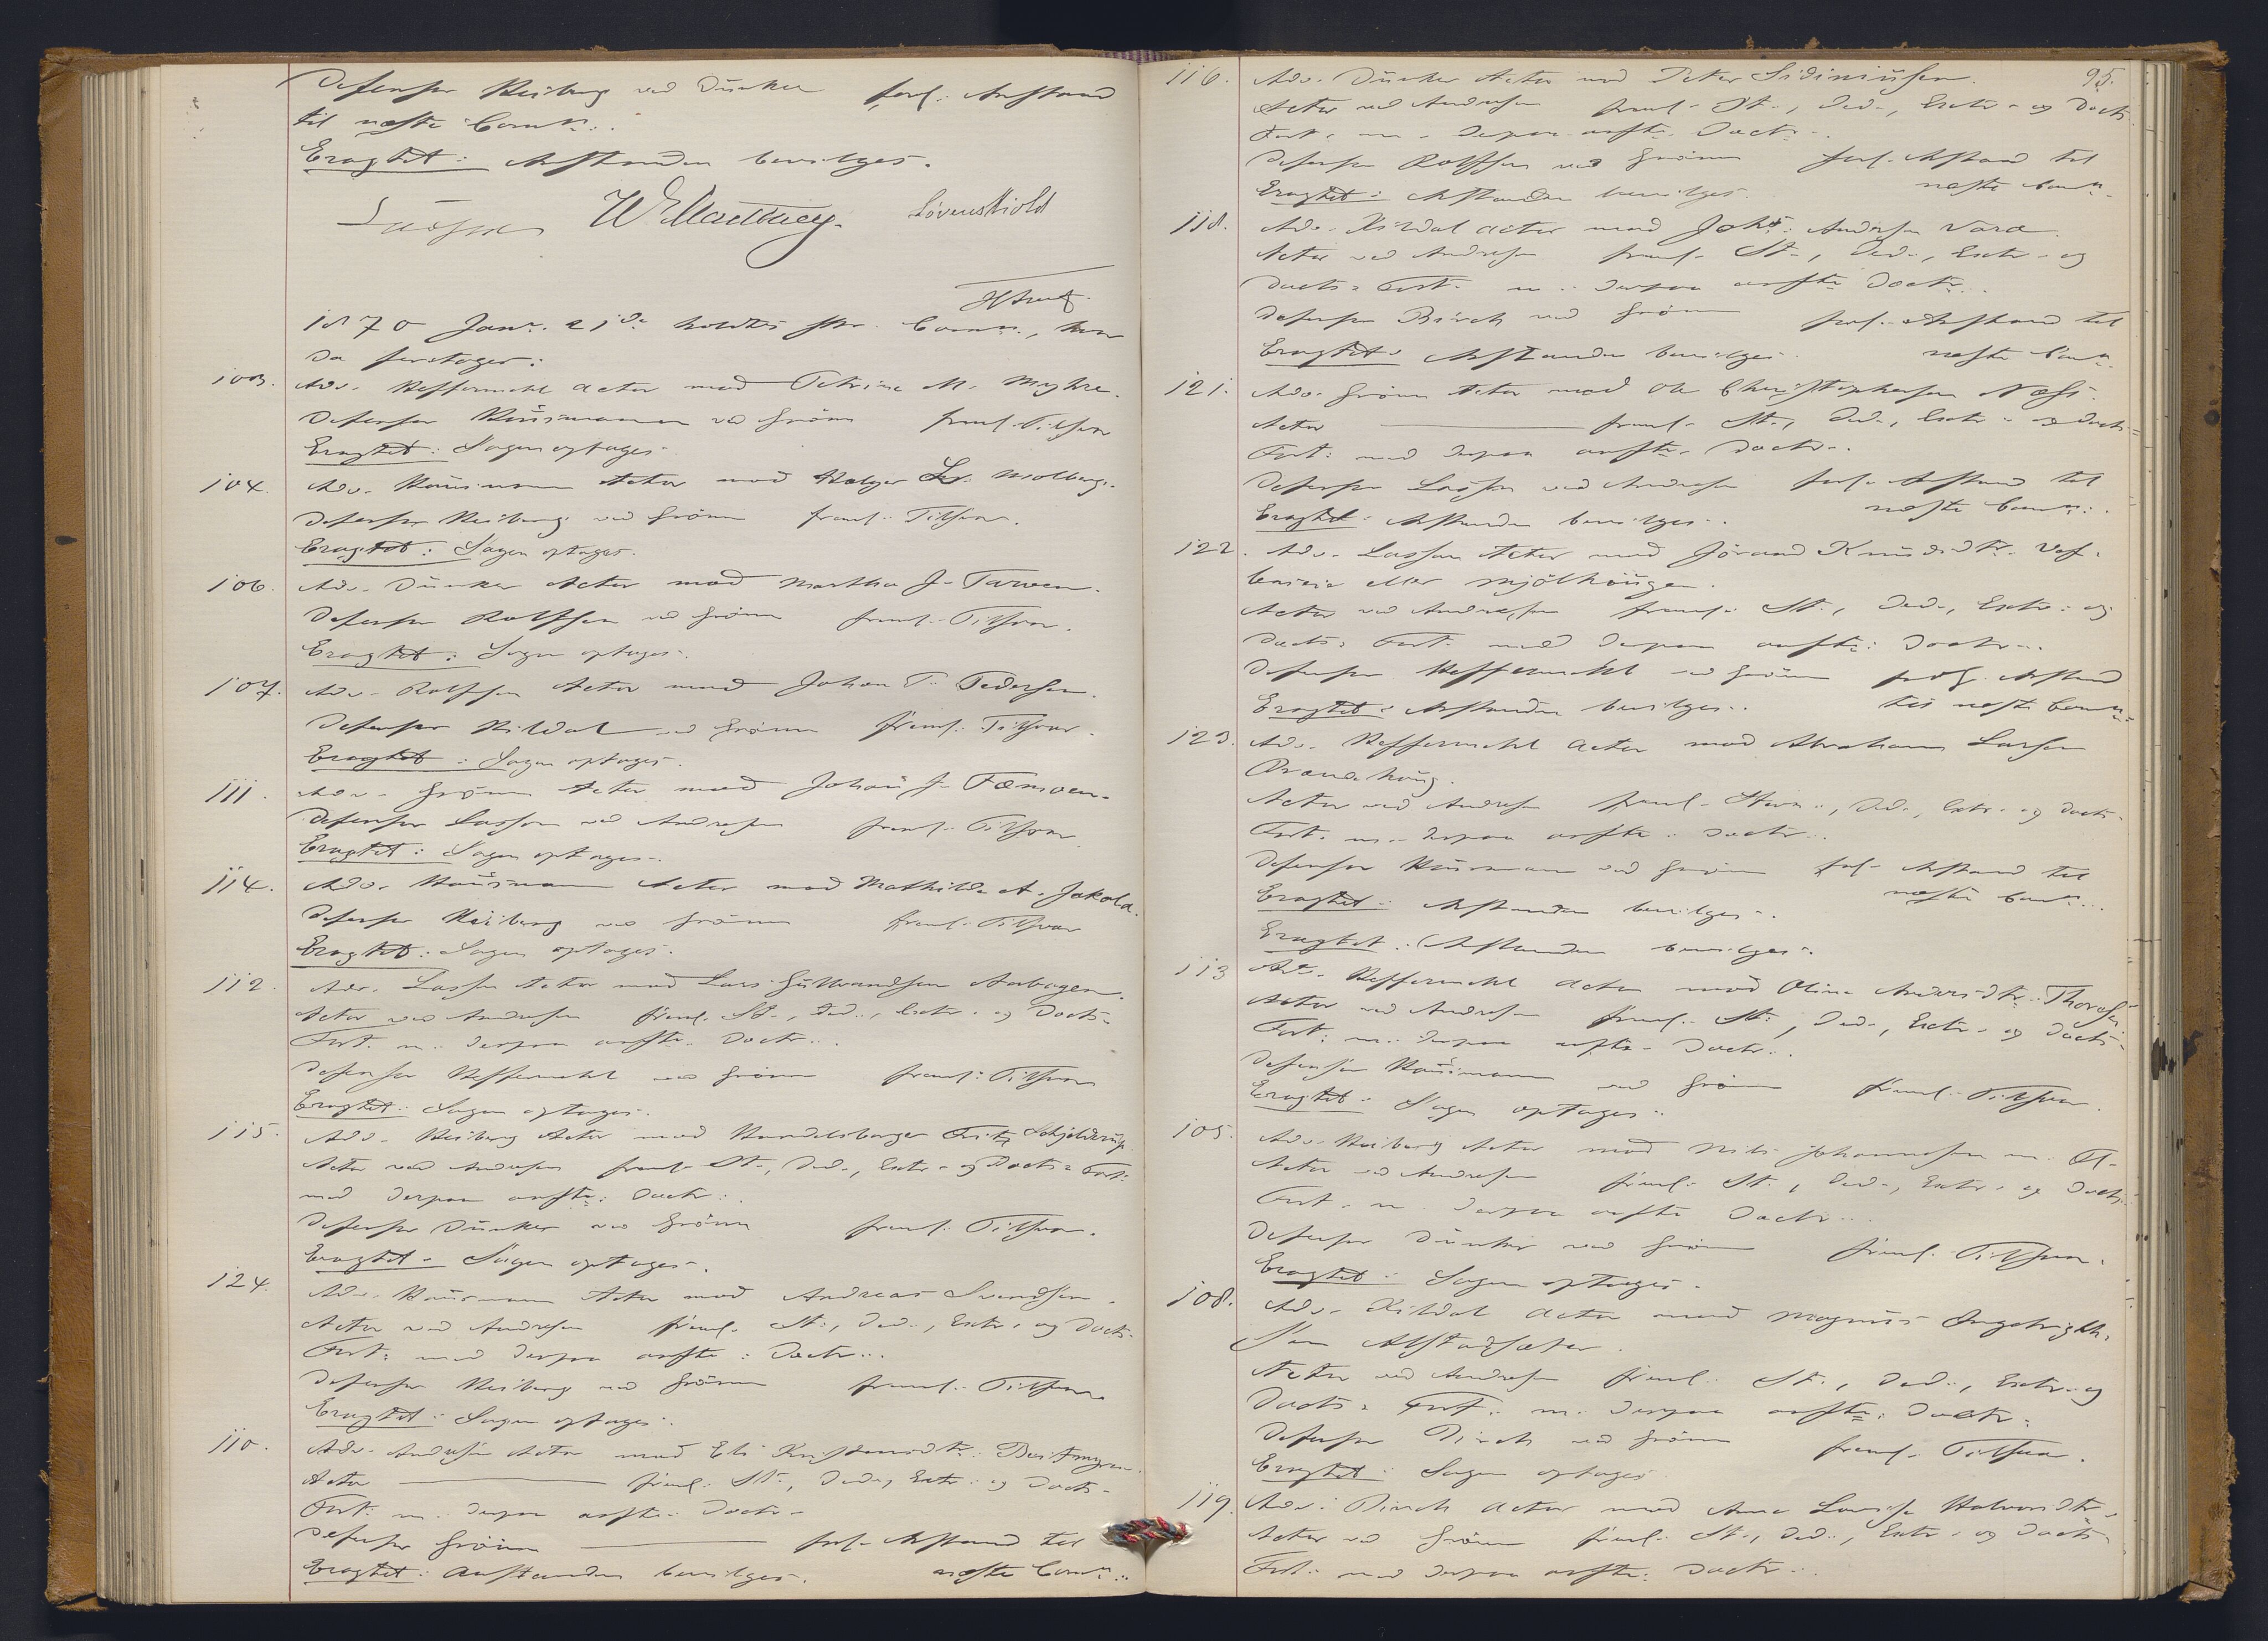 Defensor Heiberg ved Dunker forl. Anstand
til næste Comn:.
Eragtet: Anstanden bevilges.
Løvenskiold
1870 Janr. 21de holdtes ssr. Comn., hvor
da foretages:
103. Adv. Heffermehl Actor mod Petrine M. Myhre.
Defensor Hausmann ved Grönn freml. Tilsvar
Eragtet: Sagen optages.
104. Adv. Hausmann Actor mod Holger Molberg.
Defensor Heiberg ved Grönn freml. Tilsvar.
Eragtet: Sagen optages.
106. Adv. Dunker Actor mod Martha J. Tarven.
Defensor Rolfsen ved Grönn freml. Tilsvar.
Eragtet: Sagen optages.
107. Adv. Rolfsen Actor mod Johan P. Pedersen.
Defensor Kildal ved Grönn freml. Tilsvar.
Eragtet: Sagen optages.
111. Adv. Grönn Actor mod Johan J. Fæmoen.
Defensor Lasson ved Andresen freml. Tilsvar
Eragtet: Sagen optages.
114. Adv. Hausmann Actor mod Mathilde A. Jakola.
Defensor Heiberg ved Grönn freml. Tilsvar
Eragtet: Sagen optages.
112. Adv. Lasson Actor mod Lars Gulbrandsen Aabogen.
Actor ved Andresen freml. St., Ded., Extr. og Docts=
Fort. m. derpaa anfte. Doctr.
Defensor Heffermehl ved Grönn freml. Tilsvar
Eragtet: Sagen optages.
115. Adv. Heiberg Actor mod Handelsborger Fritz Schjelderup
Actor ved Andresen freml. St., Ded., Extr. og Docts= Fort.
med derpaa anfte: Doctr.
Defensor Dunker ved Grönn freml. Tilsvar.
Eragtet: Sagen optages.
124. Adv. Hausmann Actor mod Andreas Svendsen.
Actor ved Andresen freml. St., Ded., Extr. og Docts=
Fort: med derpaa anfte: Doctr.
Defensor Heiberg ved Grönn freml. Tilsvar
Eragtet: Sagen optages.
110. Adv. Andresen Actor mod Eli Kristensdtr:
Actor freml. St., Ded., Extr: og Docts-
Fort. m. derpaa anfte. Doctr.
Defensor Grönn forl. Anstand til
Eragtet: Anstanden bevilges. næste Comn:
95.
116. Adv. Dunker Actor mod Peter Sidiniusen.
Actor ved Andresen freml. St., Ded., Extr. og Docts
Fort. m. derpaa anfte. Doctr.
Defensor Rolfsen ved Grönn forl. Anstand til
Eragtet: Anstanden bevilges. næste Comn.
118. Adv. Kildal Actor mod Johs: Andersen Vara.
Actor ved Andresen freml. St., Ded., Extr. og
Docts= Fort. m. derpaa anfte Doctr.
Defensor Birch ved Grönn forl. Anstand til
Eragtet: Anstanden bevilges. næste Comn.
121. Adv. Grönn Actor mod Ole Christophersen Næss.
Actor freml. St., Ded., Extr. og Docts=
Fort: med derpaa anfte. Doctr.
Defensor Lasson ved Andresen forl. Anstand til
Eragtet: Anstanden bevilges. næste Comn:.
122. Adv. Lasson Actor mod Jörand Knudsdtr.
eller Mjölhaugen.
Actor ved Andresen freml. St., Ded., Extr: og
Docts= Fort. med derpaa anfte: Doctr.
Defensor Heffermehl ved Grönn forl. Anstand
Eragtet: Anstanden bevilges. til næste Comn.
123. Adv. Heffermehl Actor mod Abraham Larsen
Actor ved Andresen freml. Stevn., Ded., Extr. og Docts=
Fort. m. derpaa anfte. Doctr.
Defensor Hausmann ved Grönn forl. Anstand til
Eragtet: Anstanden bevilges. næste Comn.
Eragtet: Anstanden bevilges.
113 Adv. Heffermehl Actor mod Oline Andersdtr:
Actor ved Andresen freml. St., Ded., Extr. og Docts=
Fort: m. derpaa anfte. Doctr.
Defensor Hausmann ved Grönn freml. Tilsvar.
Eragtet: Sagen optages.
105. Adv. Heiberg Actor mod Nils Johannesen m. Fl.
Actor ved Andresen freml. St., Ded., Extr. og Docts
Fort. m. derpaa anfte Doctr.
Defensor Dunker ved Grönn freml. Tilsvar.
Eragtet: Sagen optages.
108. Adv. Kildal Actor mod Magnus Ingebrigt-
sen Alstadsæter.
Actor ved Andresen freml. St., Ded., Extr. og
Docts= Fort. m. derpaa anfte: Doctr.
Defensor Birch ved Grönn freml. Tilsvar.
Eragtet: Sagen optages
119. Adv. Birch Actor mod Anna Lovise Halvorsdtr.
Actor ved Grönn freml. St., Ded., Extr. og Docts
Fort. med derpaa anfte: Doctr.